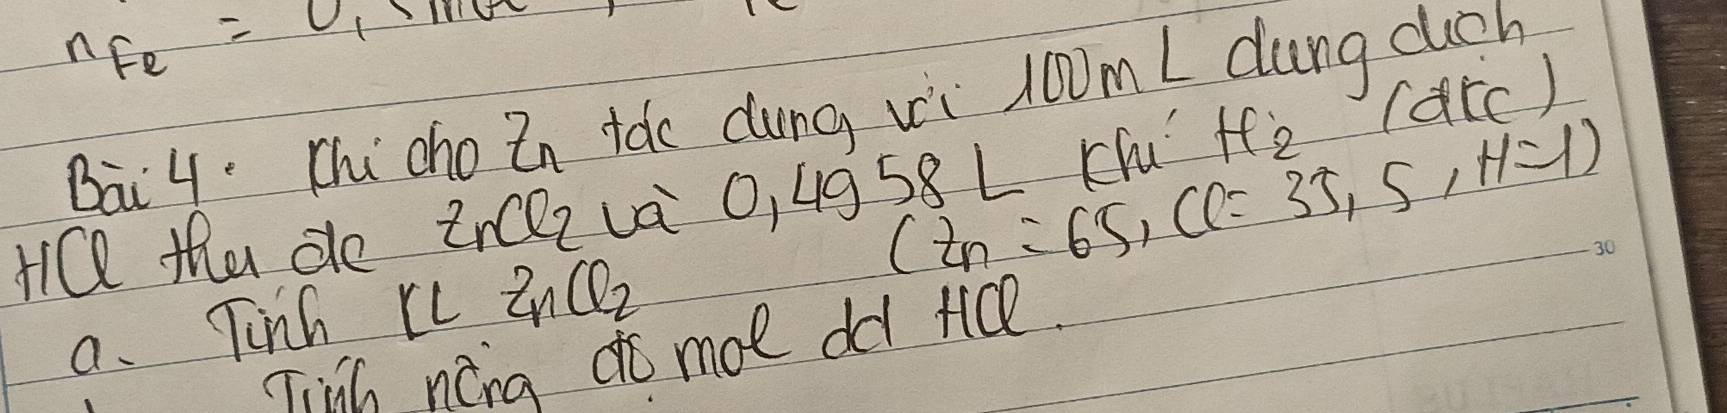 nFe = 0,
Bài 4: Khi cho Zn tác dụng với 100mL dung dịch
HCl thu đc ZnCl2 và 0,4958 L Khí H2 (đkc)
(Zn = 65, Cl = 35,5, H=1)
a. Tính KL ZnCl2
Tính nồng độ mol dd HCl.
30